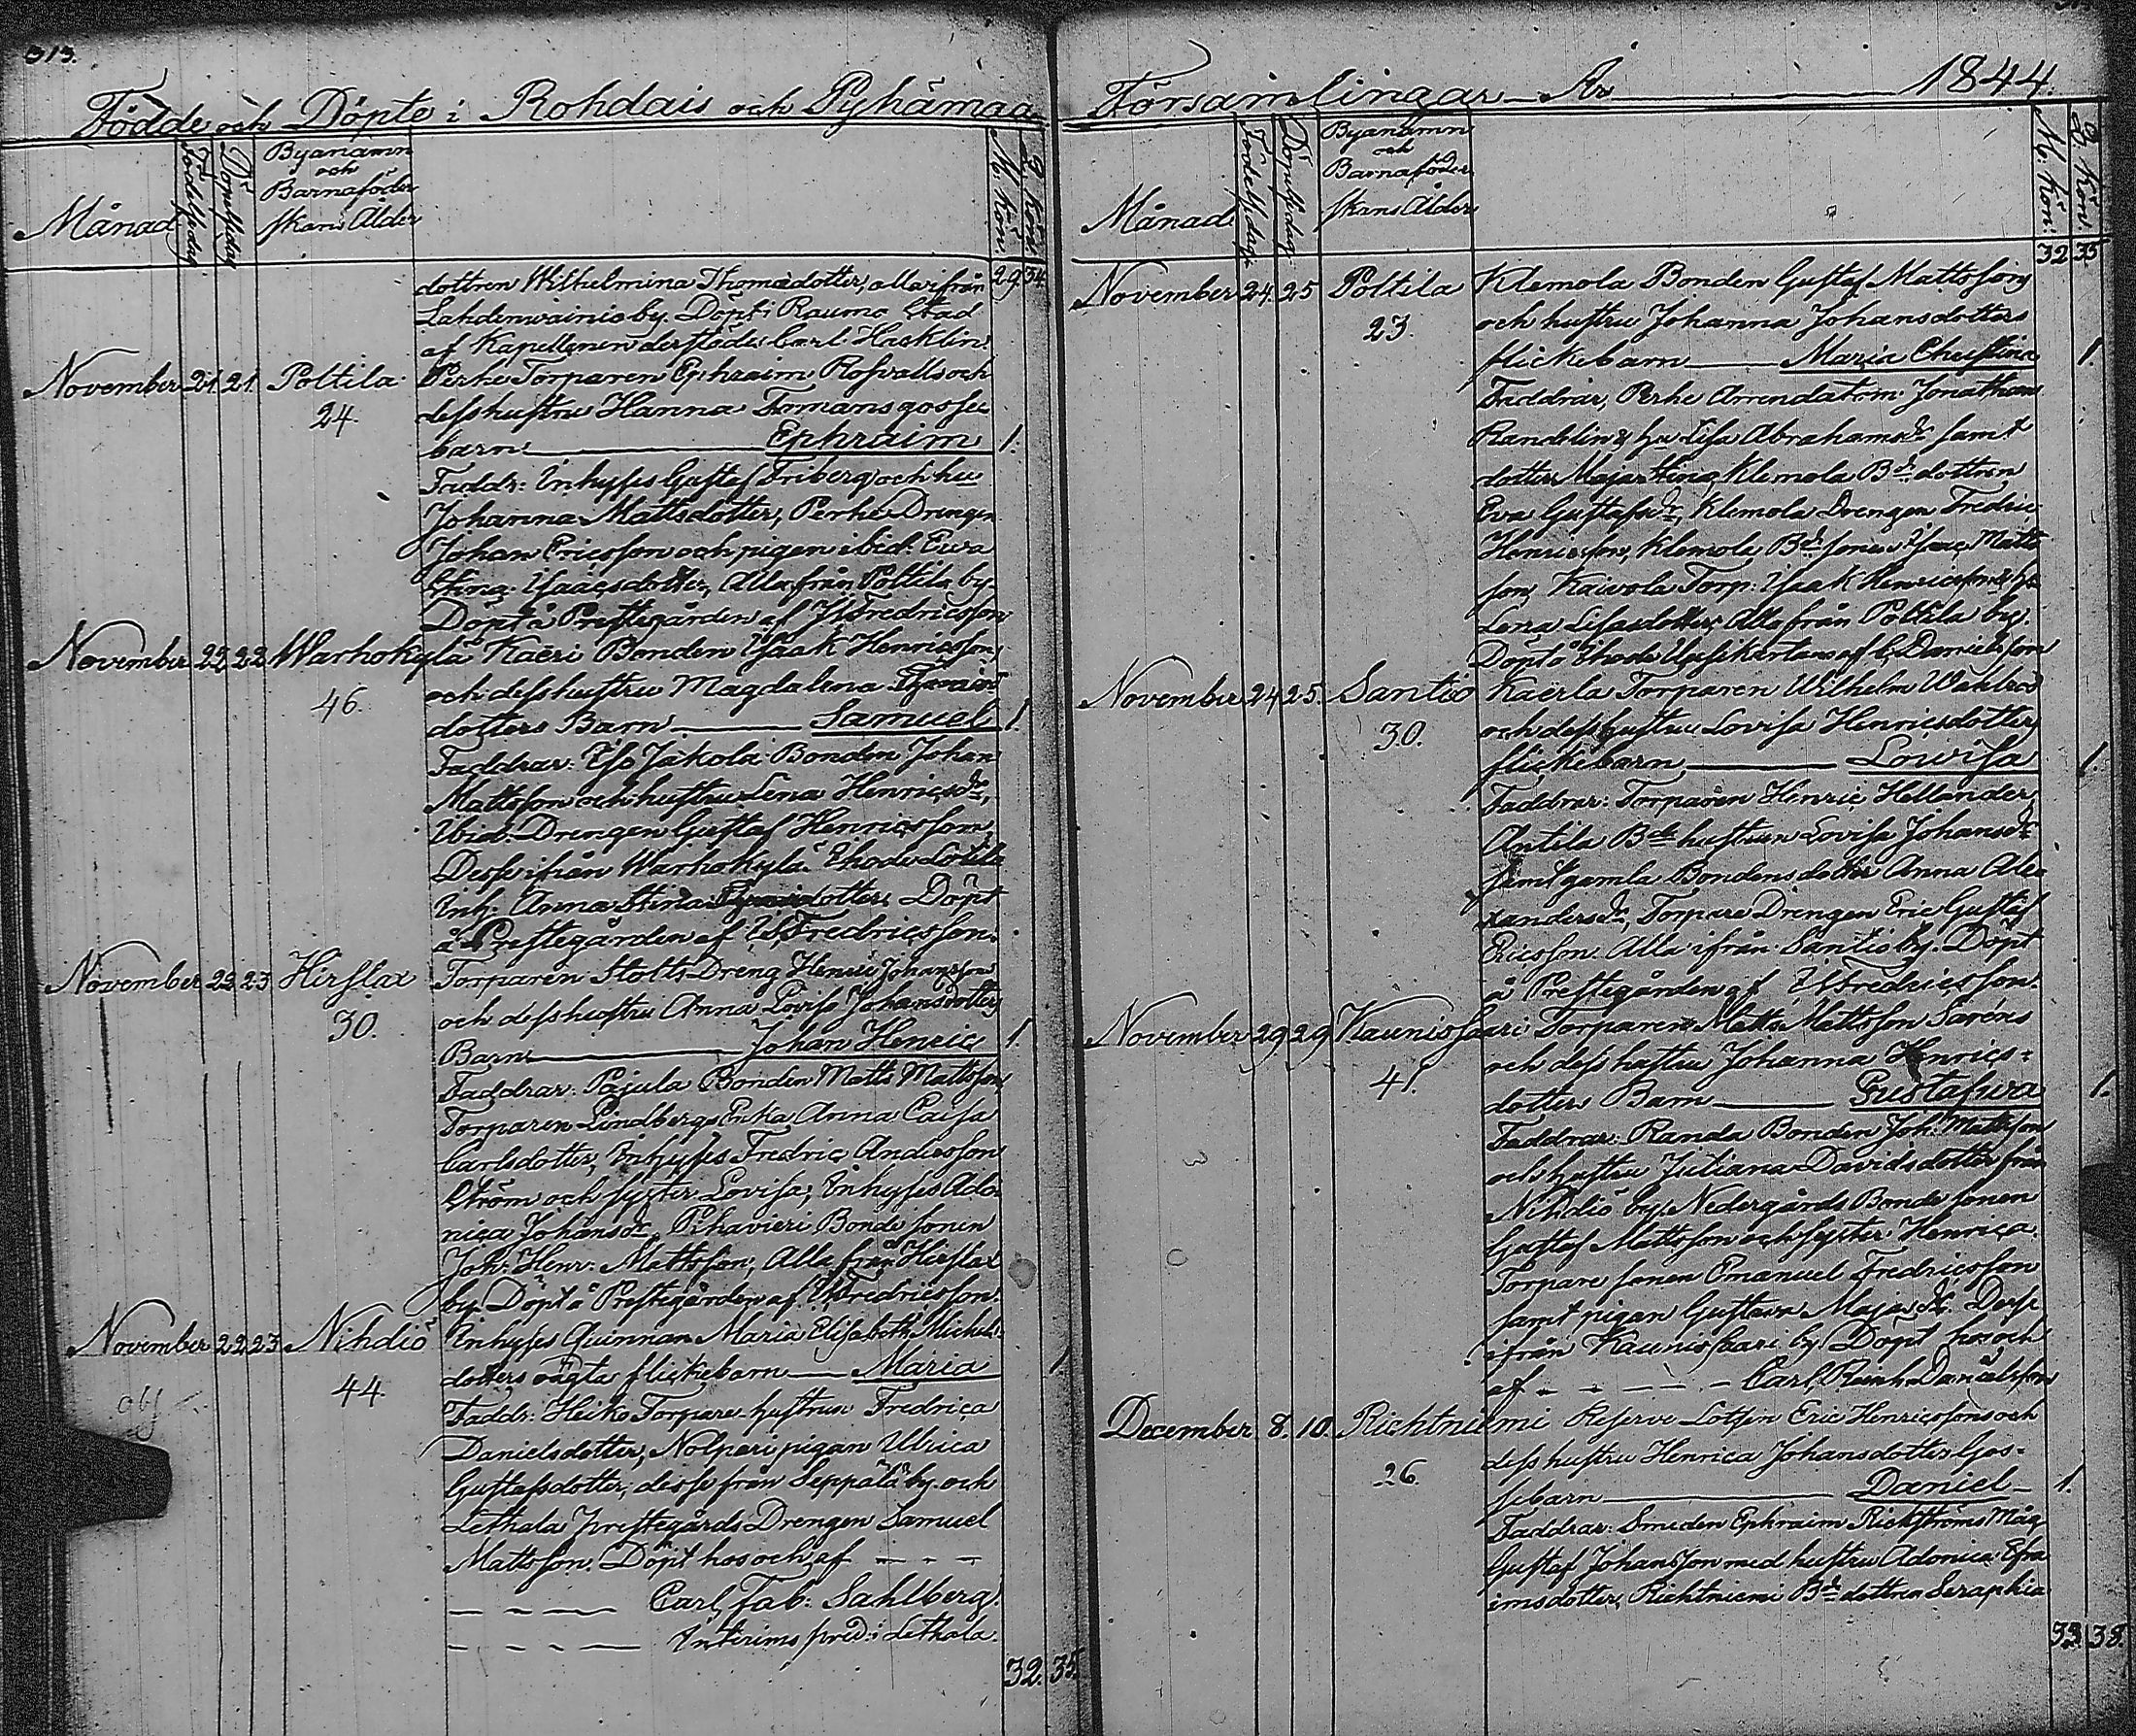 313.
Födde och Döpte i Rohdais och Pyhämaa
Månad
Födelsedag
Döpelsedag
Byanamn
och
Barnaföder
skans Ålder
M. Kön.
Q. Kön.
29 34
dottren Wilhelmina Thomasdotter, alla ifrån
Lahdenwainio by. Döpt i Raumo Stad
af Kapellanen derstädes Carl Hacklin.
November 21. 21. Poltila Perhe Torparen Ephraim Rosvalls och
24. dess hustru Hanna Tomans gosse
barn Ephraim 1.
Faddr: Inhyses Gustaf Friberg och hu
Johanna Mattsdotter, Perhe Drengen
Johan Ericsson och pigen ibid: Ewa
Stina Isaacsdotter, Alla från Poltila by.
Döpt å Prestegården af Is Fredricsson
November 22 22 Warhokylä Kaeri Bonden Isaak Henricssons
46. och dess hustru Magdalena
dotters Barn Samuel 1.
Faddrar: Eso Jakola Bonden Johan
Mattsson och hustru Lena Henricsdr,
Ibid: Drengen Gustaf Henricsson,
Desse ifrån Warhokylä. Ehode
Inh. Anna Stina dotter. Döpt
å Prestegården af Is Fredricsson.
November 22 23 Hirslax Torparen Stolts Dreng Henric Johanssons
30. och dess hustru Anna Lovisa Johansdotters
Barn Johan Henric 1.
Faddrar: Pajula Bonden Matts Mattsson,
Torparen Lindbergs Enka Anna Caisa
Carlsdotter, Inhyses Fredric Andersson
Ström och syster Lovisa; Inhyses Ado
nica Johansdr, Pihavieri Bonde sonen
Joh: Henr: Mattsson; Alla från Hirslax
by. Döpt å Prestegården af Is Fredricsson.
November 22 23 Nihdiö Inhyses Quinnan Maria Elisabeth Michels
44 dotters oägta flickebarn Maria 1.
Faddr: Heiko Torpare hustrun Fredrica
Danielsdotter, Nolpari pigan Ulrica
Gustafsdotter, desse från Seppälä by och
Lethala prestegårds Drengen Samuel
Mattsson. Döpt hos och af
Carl Fab: Sahlberg.
Interims pred: i Lethala.
32. 35.
Församlingar År 1844.
Månad
Födelsedag
Döpelsedag
Byanamn
och
Barnaföder
skans Ålder
M. Kön.
Q. Kön.
32 35
November 24. 25 Poltila Klemola Bonden Gustaf Mattssons
23. och hustru Johanna Johansdotters
flickebarn Maria Christina 1.
Faddrar, Perhe Arrendatorn Jonathan
Randelin & hu Lisa Abrahamsdr samt
dotter Maja Stina, Klemola Bd: dottren
Eva Gustafsdr, Klemola Drengen Fredric
Henricsson, Klemola Bd: sonen Isaac Matts
son, Kaivola Torp: Isaak Henricsson & hu
Lena Lisasdotter, Alla från Poltila by.
Döpt å Ehode af C. Danielsson
November 24 25. Santio Kaerla Torparen Wilhelm Wahlros
30. och dess hustru Lovisa Henricsdotters
flickebarn Lowisa 1.
Faddrar: Torparen Henric Hellander,
Antila Bde hustrun Lovisa Johansdr
samt gamla Bondens dotter Anna Alex
andersdr, Torpare Drengen Eric Gustaf
Ericsson. Alla ifrån Santio by. Döpt
å Prestegården af Is Fredricsson.
November 29 29 Kaunissaari Torparen Matts Mattsson Saréns
41. och dess hustru Johanna Henrics-
dotters Barn Gustafwa 1.
Faddrar: Randa Bonden Joh: Mattsson
och hustru Juliana Davidsdotter från
Nihdiö by, Nedergårds Bonde sonen
Gustaf Mattsson och syster Henrica.
Torpare sonen Emanuel Fredricsson
samt pigan Gustava Majasdr. Desse
ifrån Kaunissaari by. Döpt hos och
af Carl Reinh. Danielsson
December 8. 10. Richtniemi Reserve Lotsen Eric Henricssons och
26. dess hustru Henrica Johansdotters Gos-
sebarn Daniel 1.
Faddrar: Smeden Ephraim Rickströms Måg
Gustaf Johansson med hustru Adonica Efra
imsdotter, Richtniemi Bd: dottren Seraphia
33. 38.